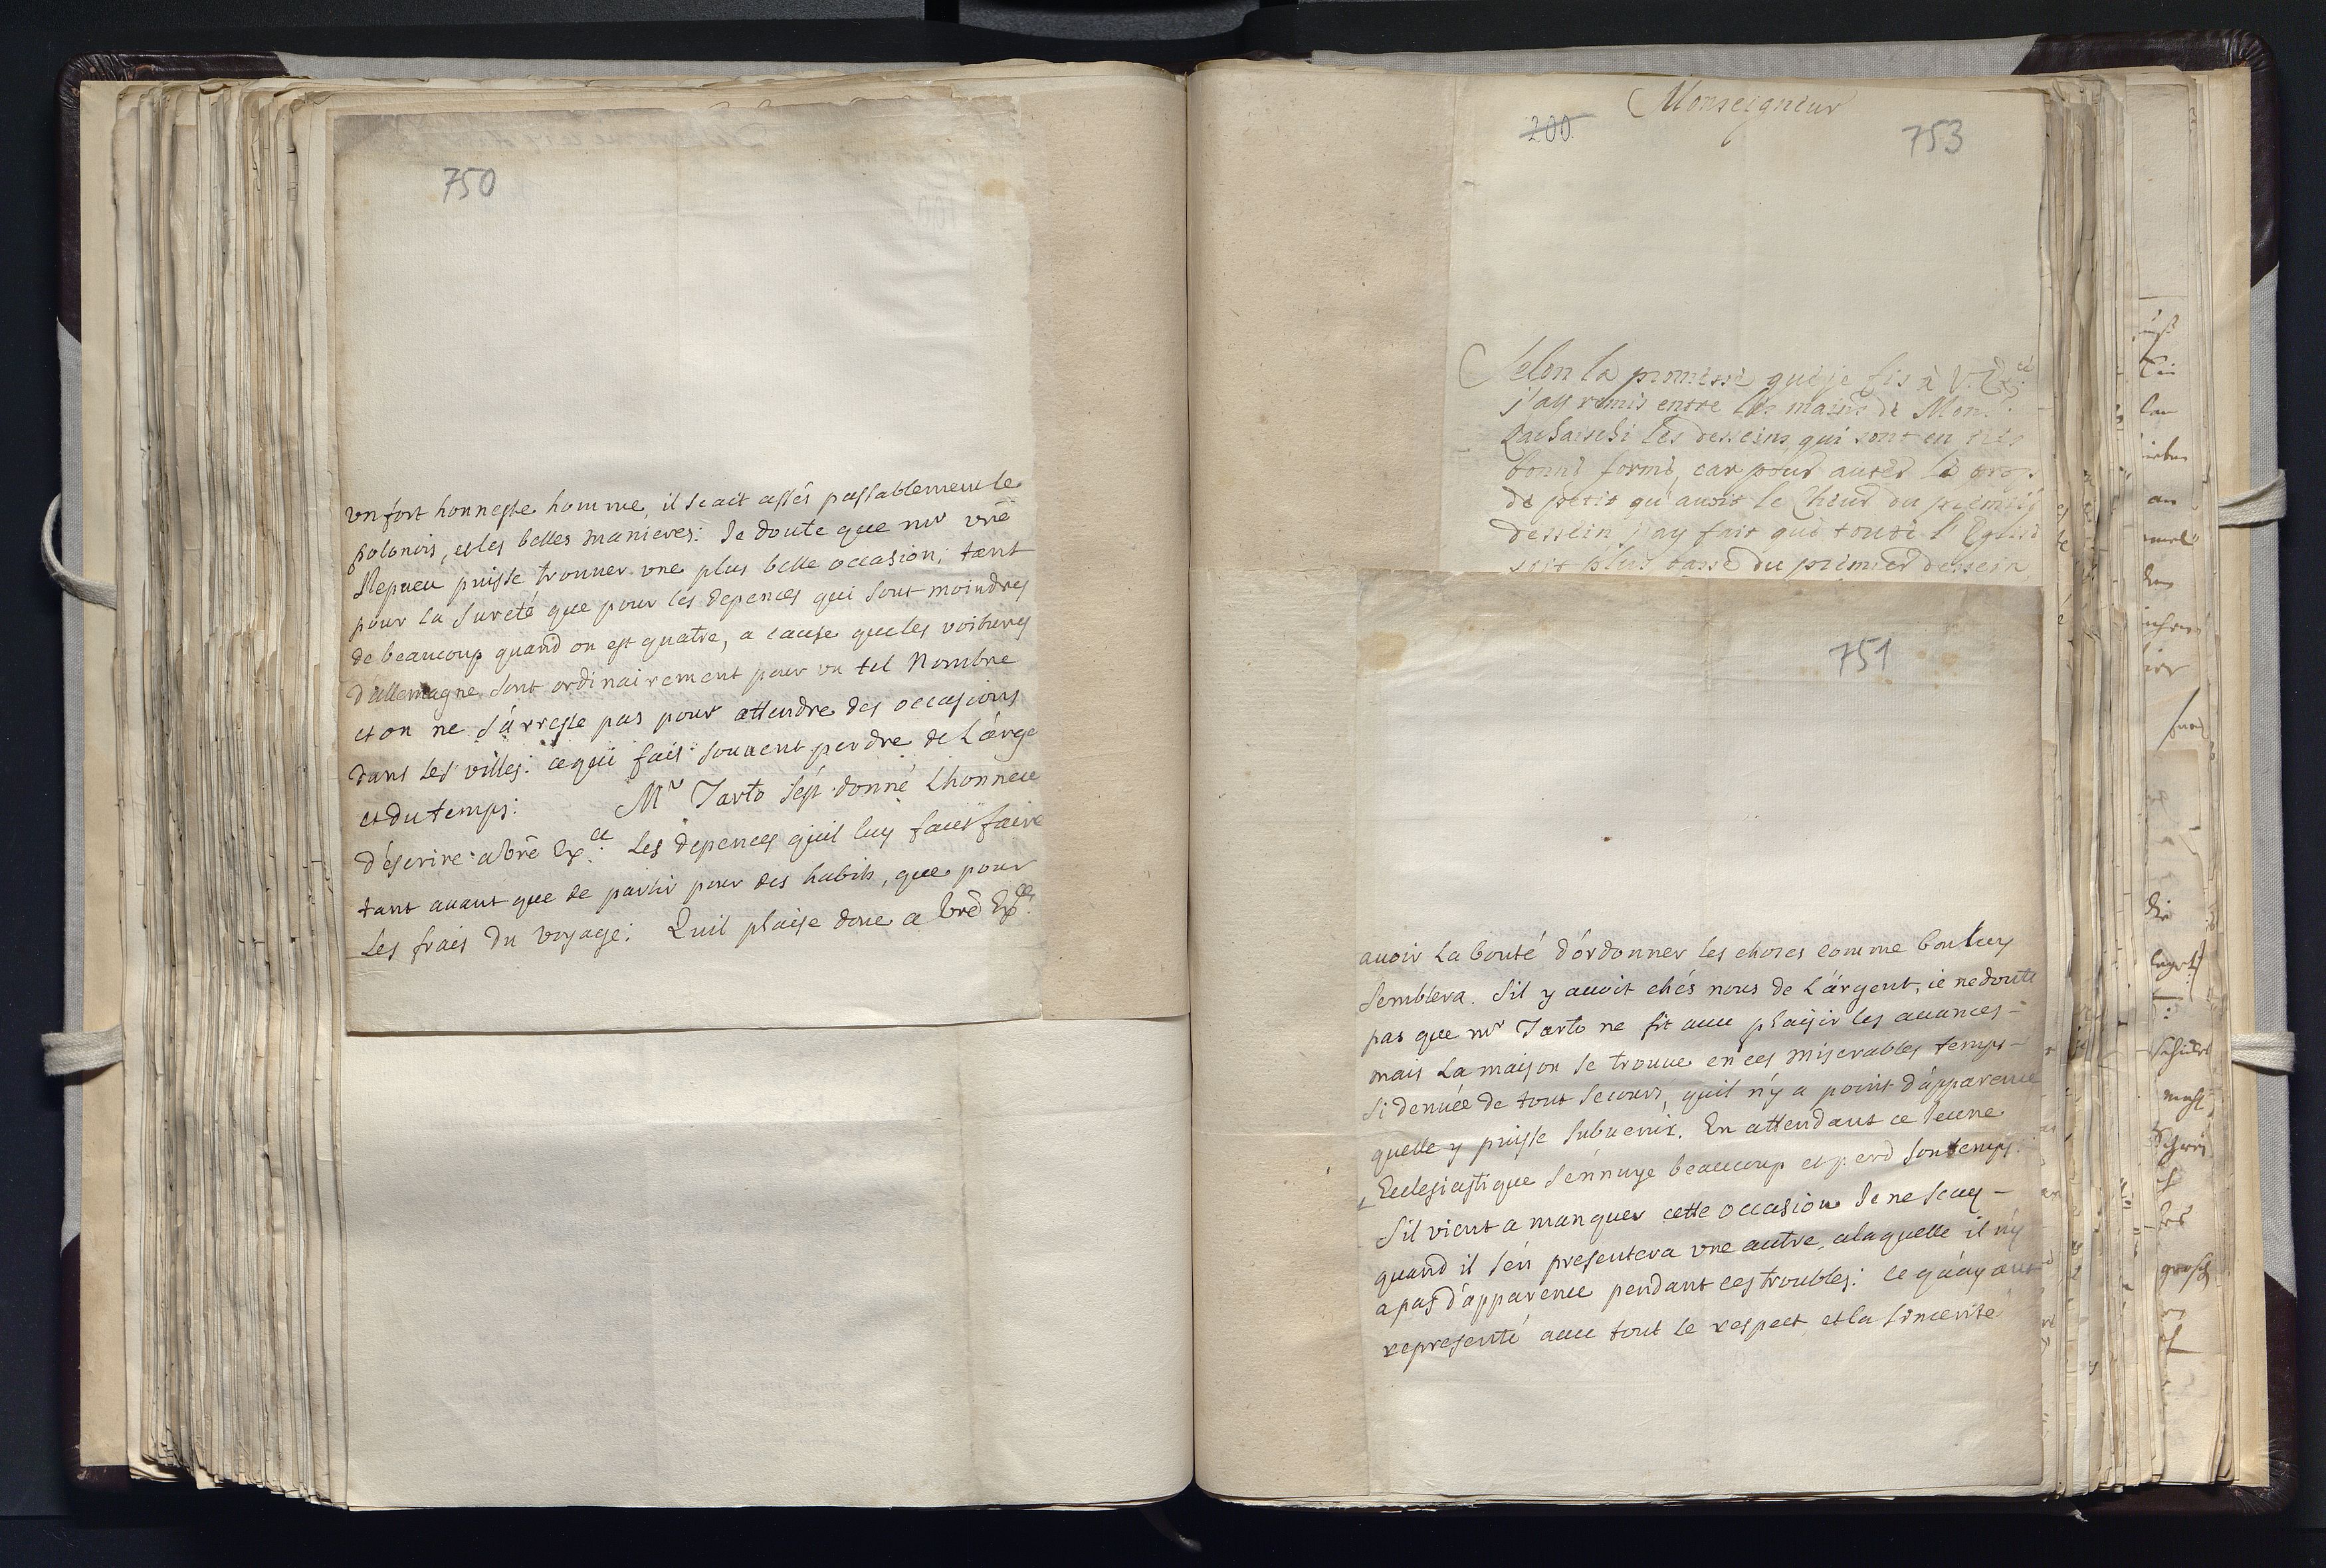 750
vn fort honneste homme, il scait assés passablement le
polonois, et les belles manieres: Je doute que mr vrē
Nepueu puisse trouuer vne plus belle occasion; tant
pour la sureté que pour les depences qui sont moindres
de beaucoup quand on est quatre, a cause que les voitures
d'allemagne sont ordinairement pour vn tel Nombre
et on ne s'arreste pas pour attendre des occasions
dans les villes: ce qui fait souuent perdre de l'arge
et du temps: Mr Tarto s'est donné Lhonneu
d'escrire a Vrē Ex.ce Les depences quil luy faut faire
tant auant que de partir pour des habits, que pour
Les frais du voyage: Quil plaise donc a Vrē Ex.ce
Monseigneur
200. 753
Selon la promesse que je fis à V. Ex.ce
j'ay remis entre les mains de Mons.
les desseins, qui sont en très
bonne forme, car pour auter le
de petit qu'auoit le Cheur du premier
dessein j'ay fait que toute l'Eglise
soit plus du premier dessein,
751
auoir La bonté d'ordonner les choses comme bon luy
semblera. S'il y auoit chés nous de L'argent, ie ne doute
pas que mr Tarto ne fit auec plaisir les auances -
mais La maison se trouue en ces miserables temps -
si denuée de tout secours, quil n'y a point d'apparence
quelle y puisse subuenir. En attendant ce Jeune
Ecclesiastique s'ennuye beaucoup et perd son temps:
S'il vient a manquer cette occasion Je ne scay -
quand il s'en presentera vne autre, a laquelle il n'y
a pas d'apparence pendant ces troubles: ce qu'ayant
representé auec tout le respect et la sincerité